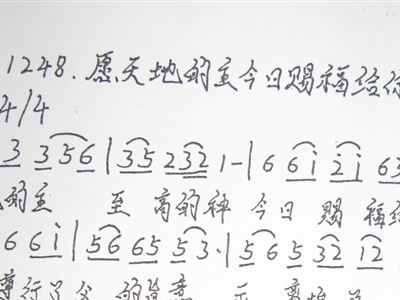 1248.愿天地的主今日赐福给你
4/4
3 356|35 232 1-|6 6i 2i 63
的主 至 高的神 今日 赐 福给
6 6i|56 65 53·|565 32 12